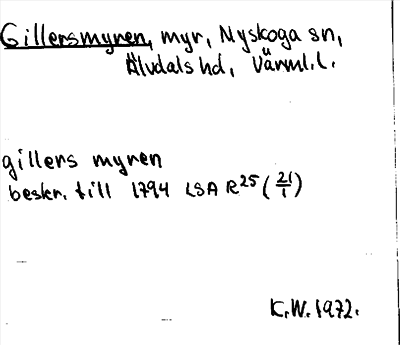 Gillersmyren, myr, Nyskoga sn,
Älvdals hd, Värml. l.
gillers myren
beskr. till 1794 LSA R25 (21/1)
K.W. 1972.